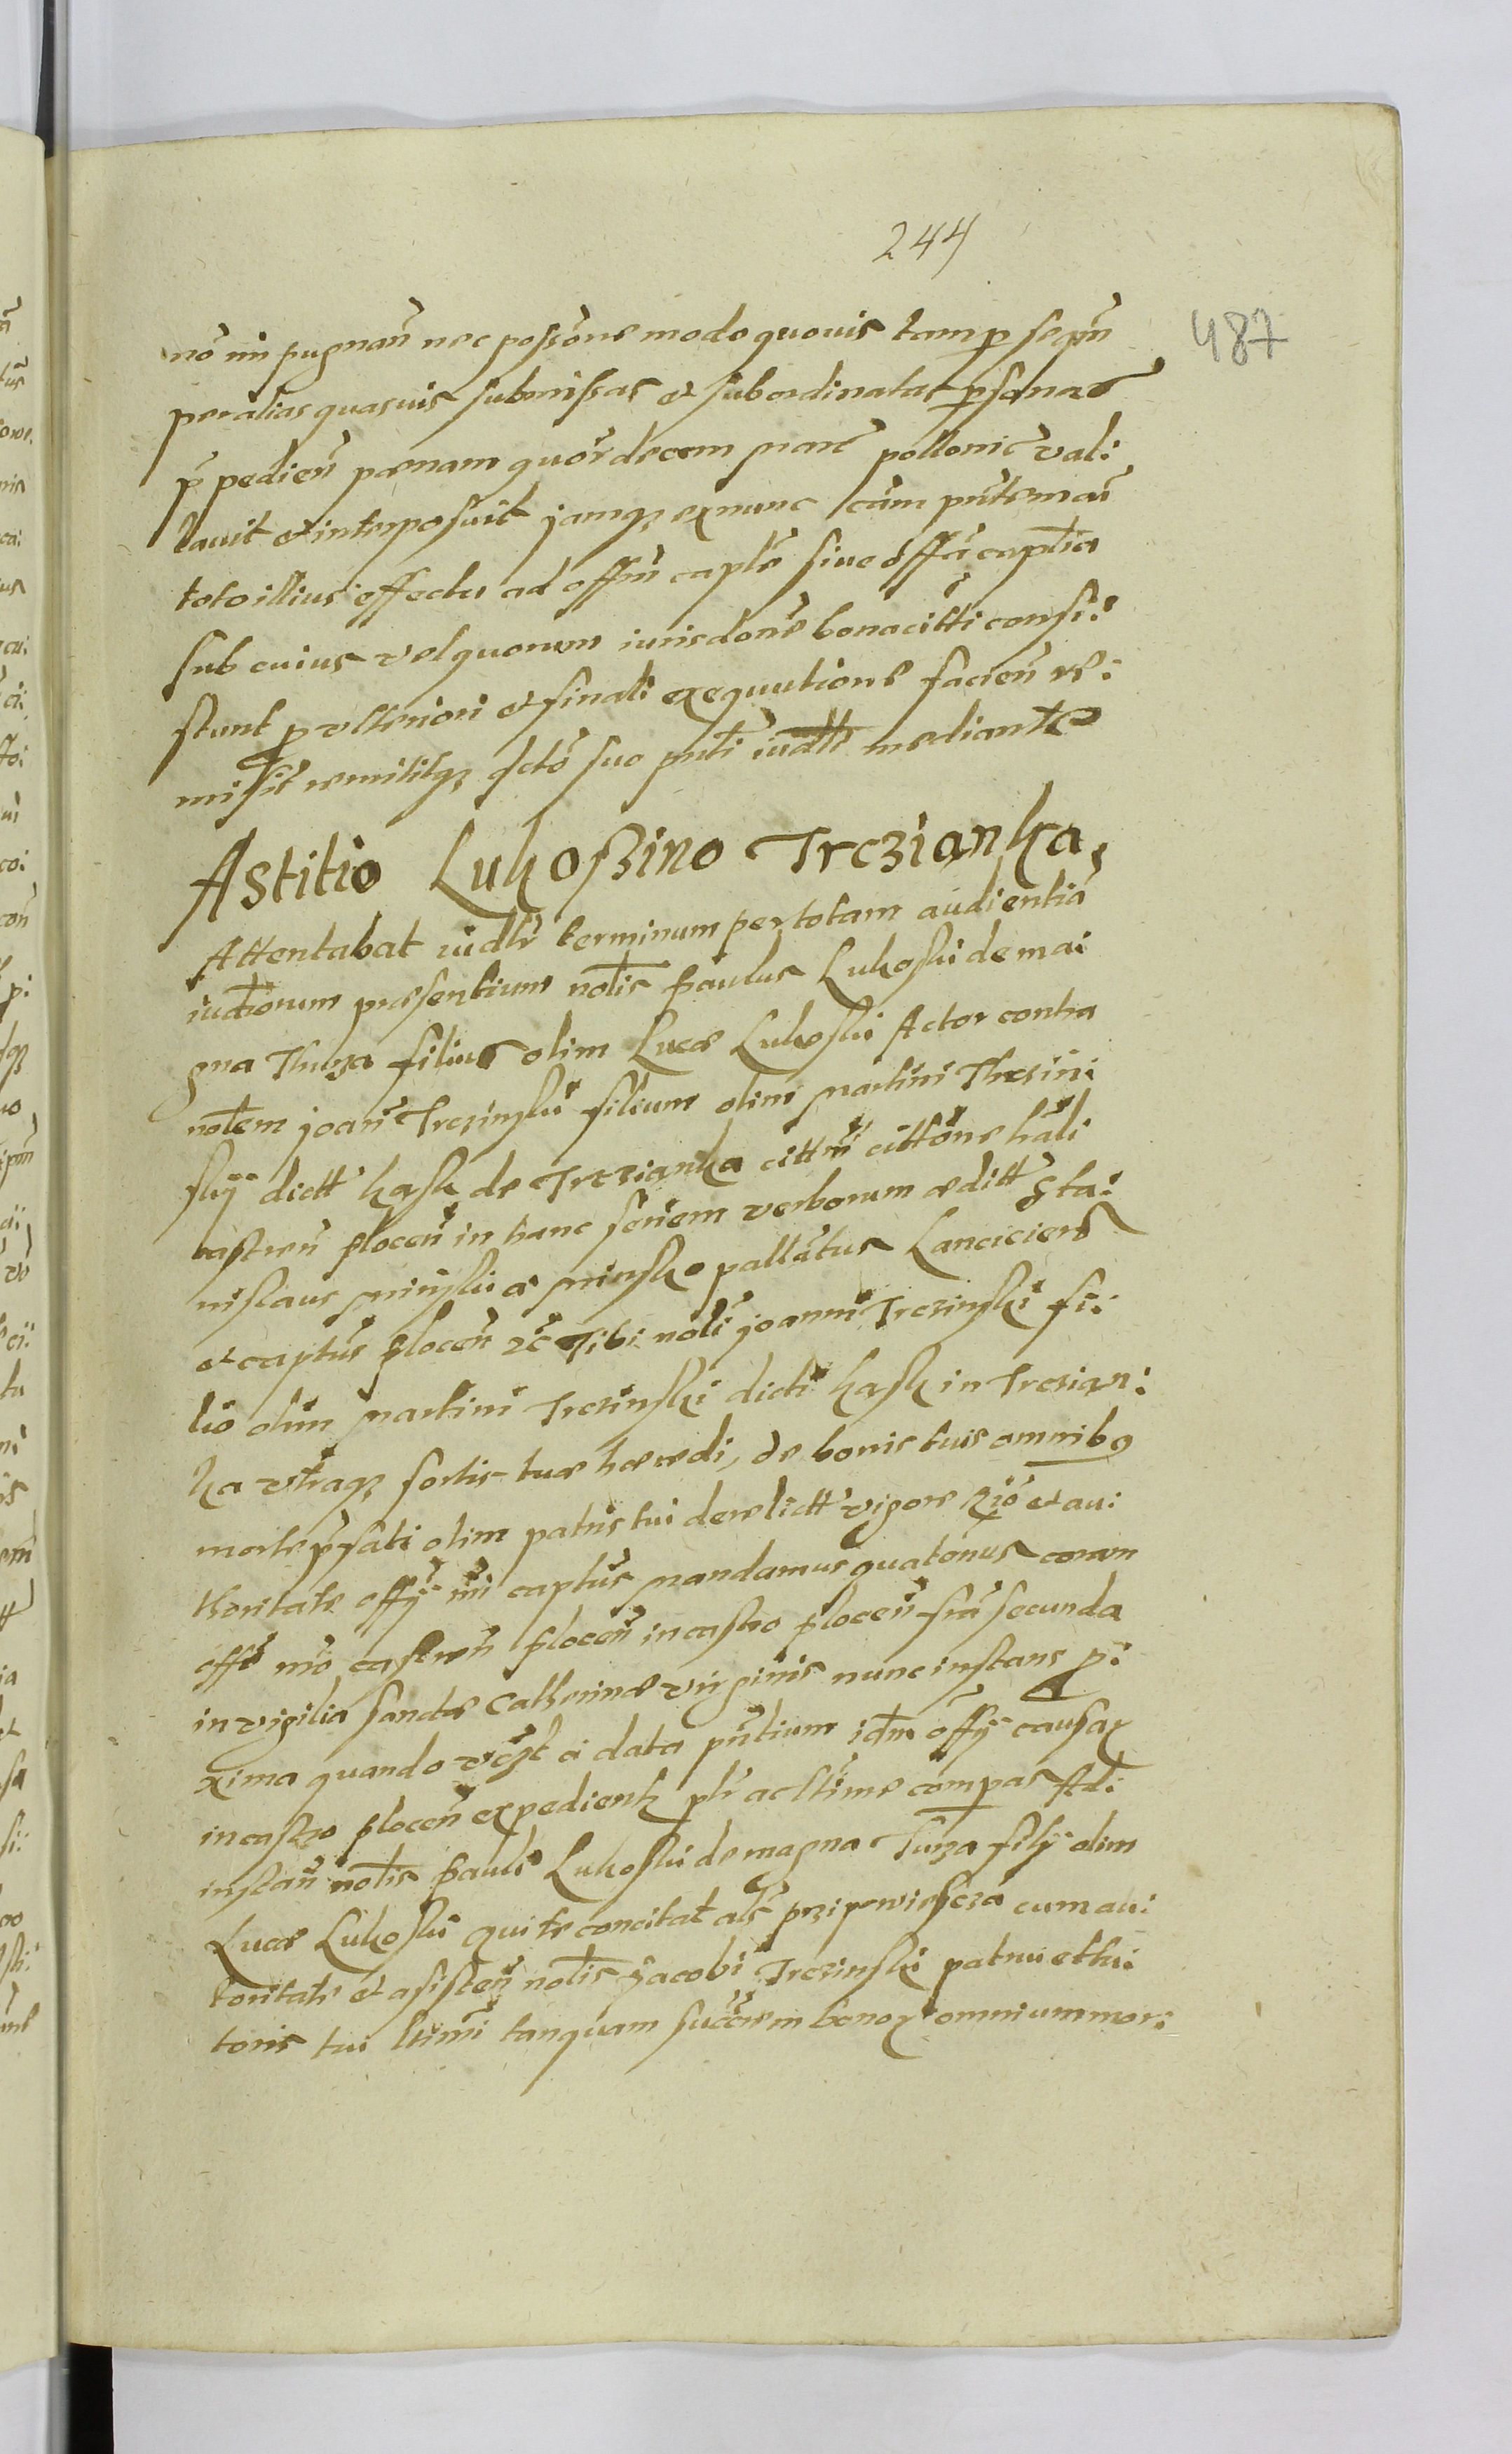 244
487
nō impugnañ nec possōne modo quovis tam p se qm̃
per alias quasvis submissas et subordinatas psonas
p̃pediẽn pœnam quordecem marc pollonic vali:
lavit et interposuit jamqz exnunc cām pñtem cũ
toto illius effectu ad offm̃ captl̃e sive offā captl̃ia
sub cuius vel quorum iurisdōne bona citti consi:
stunt p ulteriori et finali exequutione facien̄ re:
misit remititqz dcto suo pn̄ti iudtt mediante
Astitio Lukoßino Trczianka,
Attentabat iudlr̃ terminum per totam audientiā
iudtiorum præsentium noblis Paulus Lukoski de mai
gna Thuza filius olim Lucæ Lukoski Actor contra
noblem joañ Trczinski filium olim Martini Thrczin:
skij dictt kask de Trczianka cittm̃ cittōne hāli
castreñ plocen̄ in hanc seriem verborum æditt Sta:
nislaus Minski a Minsko pallātus Lanciciens
et captūs plocen̄ zc̃ Tibi nobli joanni Trczinski fi:
lio olim Martini Trczinski dicti kask in Trczian:
ka vtraqz sortis tuæ hæredi, de bonis tuis omnibq
morte p̃fati olim patris tui derelictt vigore hr̃o et au:
thoritate offy nr̃i captūs Mandamus quatenus coram
offō nr̃o castreñ plocen̄ in castro plocen̄ fr̃a secunda
in vigilia sanctæ Catherinæ virginis nunc instans p:
xima quando vczt a data pn̄tium idm offy causas
in castro plocen̄ expedientz plr̃ ac ltime compas Ad:
instañ noblis Pauli Lukoski de magna Tuza filij olim
Lucæ Lukoski qui te concitat als przipowiescza cum au:
toritate et asisteñ noblis Jacobi Trczinski patrui et tu:
toris tui ltimi tanquam succōrem bonoz omnium mor: